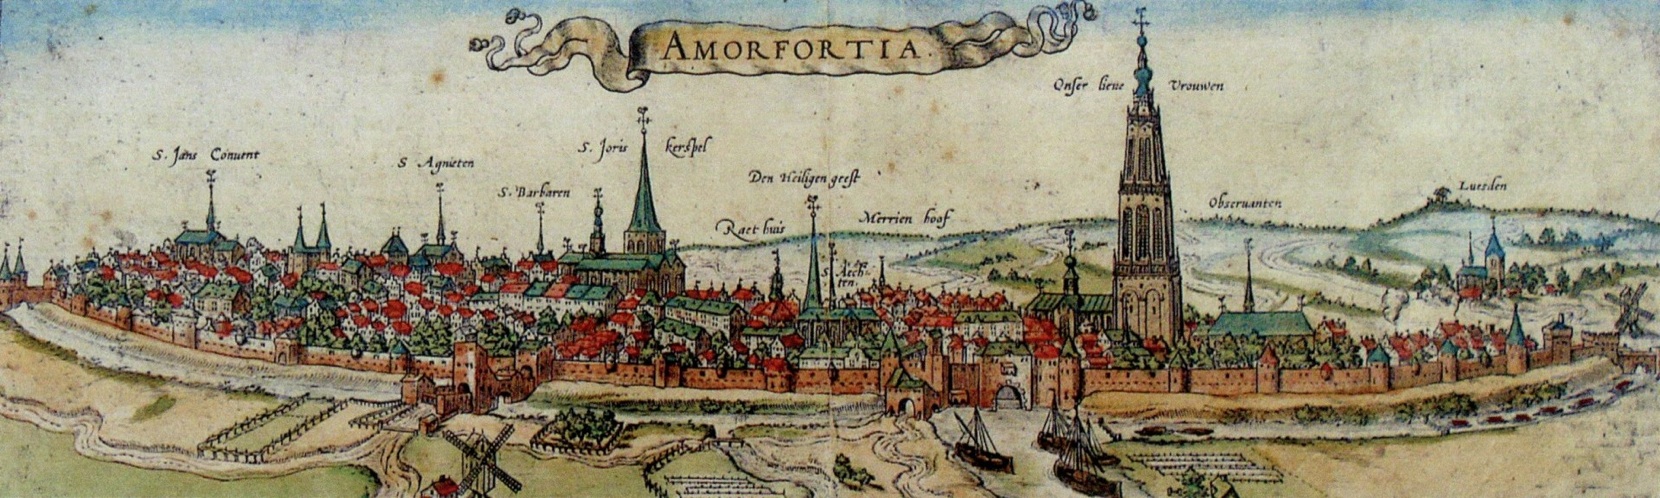 AMORFORTIA.
Onser lieue Vrouwen
S. Jans Conuent
S Agnieten
S. Barbaren
S. Joris kerspel
Den Heiligen geest
Raet huis
Merrien hoof
S. Aech-
ten.
Obseruanten
Luesden